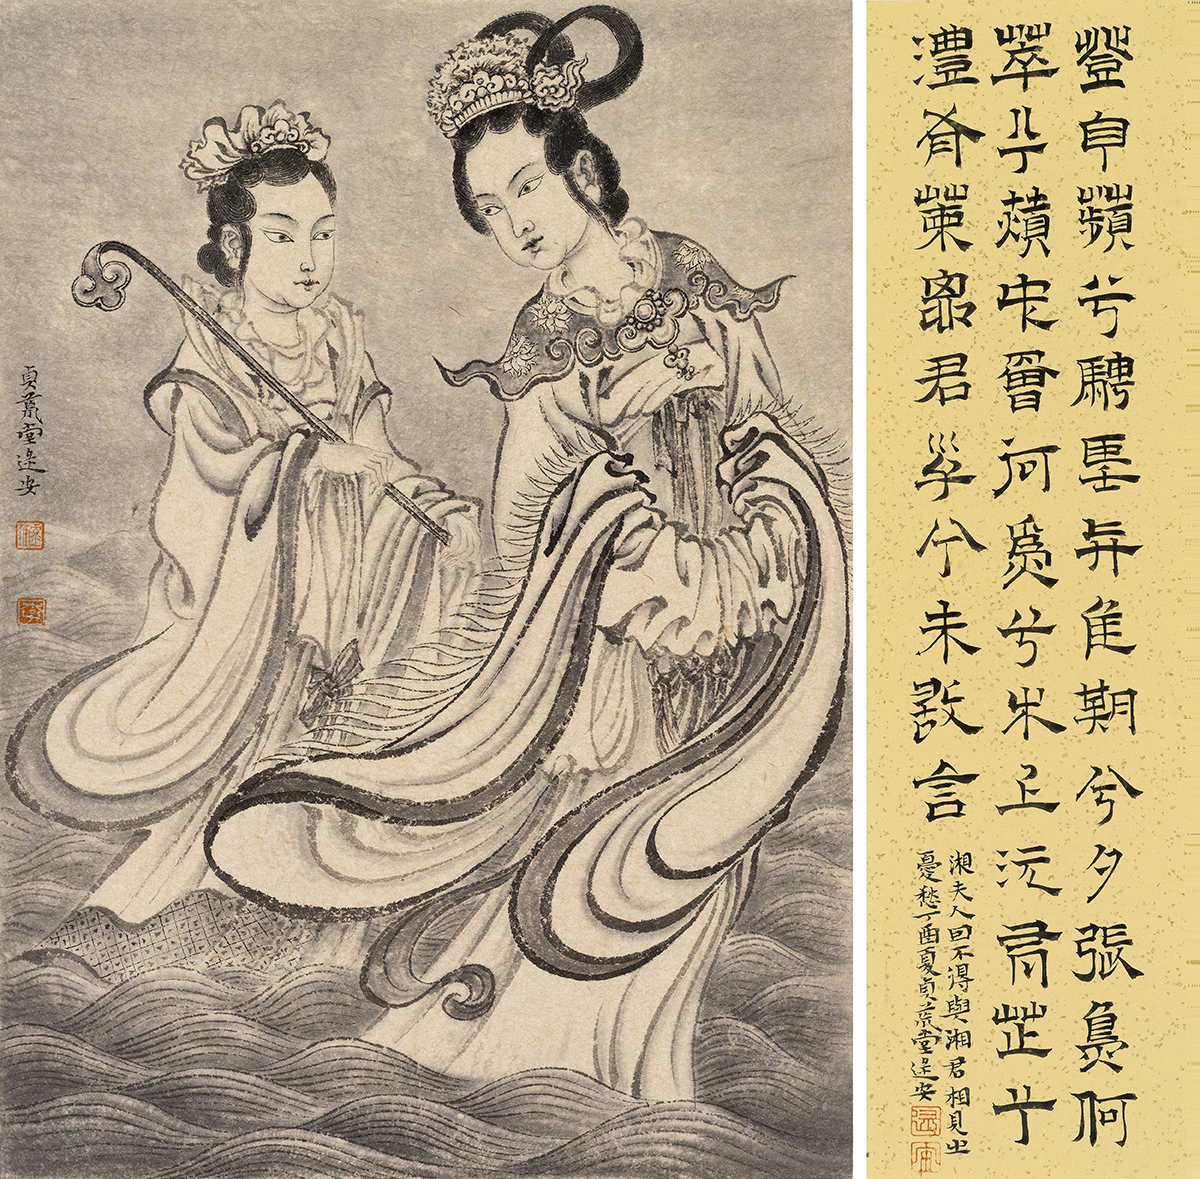 登白蘋兮騁望与佳期兮夕張鳥何
萃兮蘋中罾何爲兮木上沅有芷兮
澧有蘭思君子兮未敢言
湘夫人因不得與湘君相見之
憂愁丁酉夏貞荒堂逯安
貞荒堂逯安